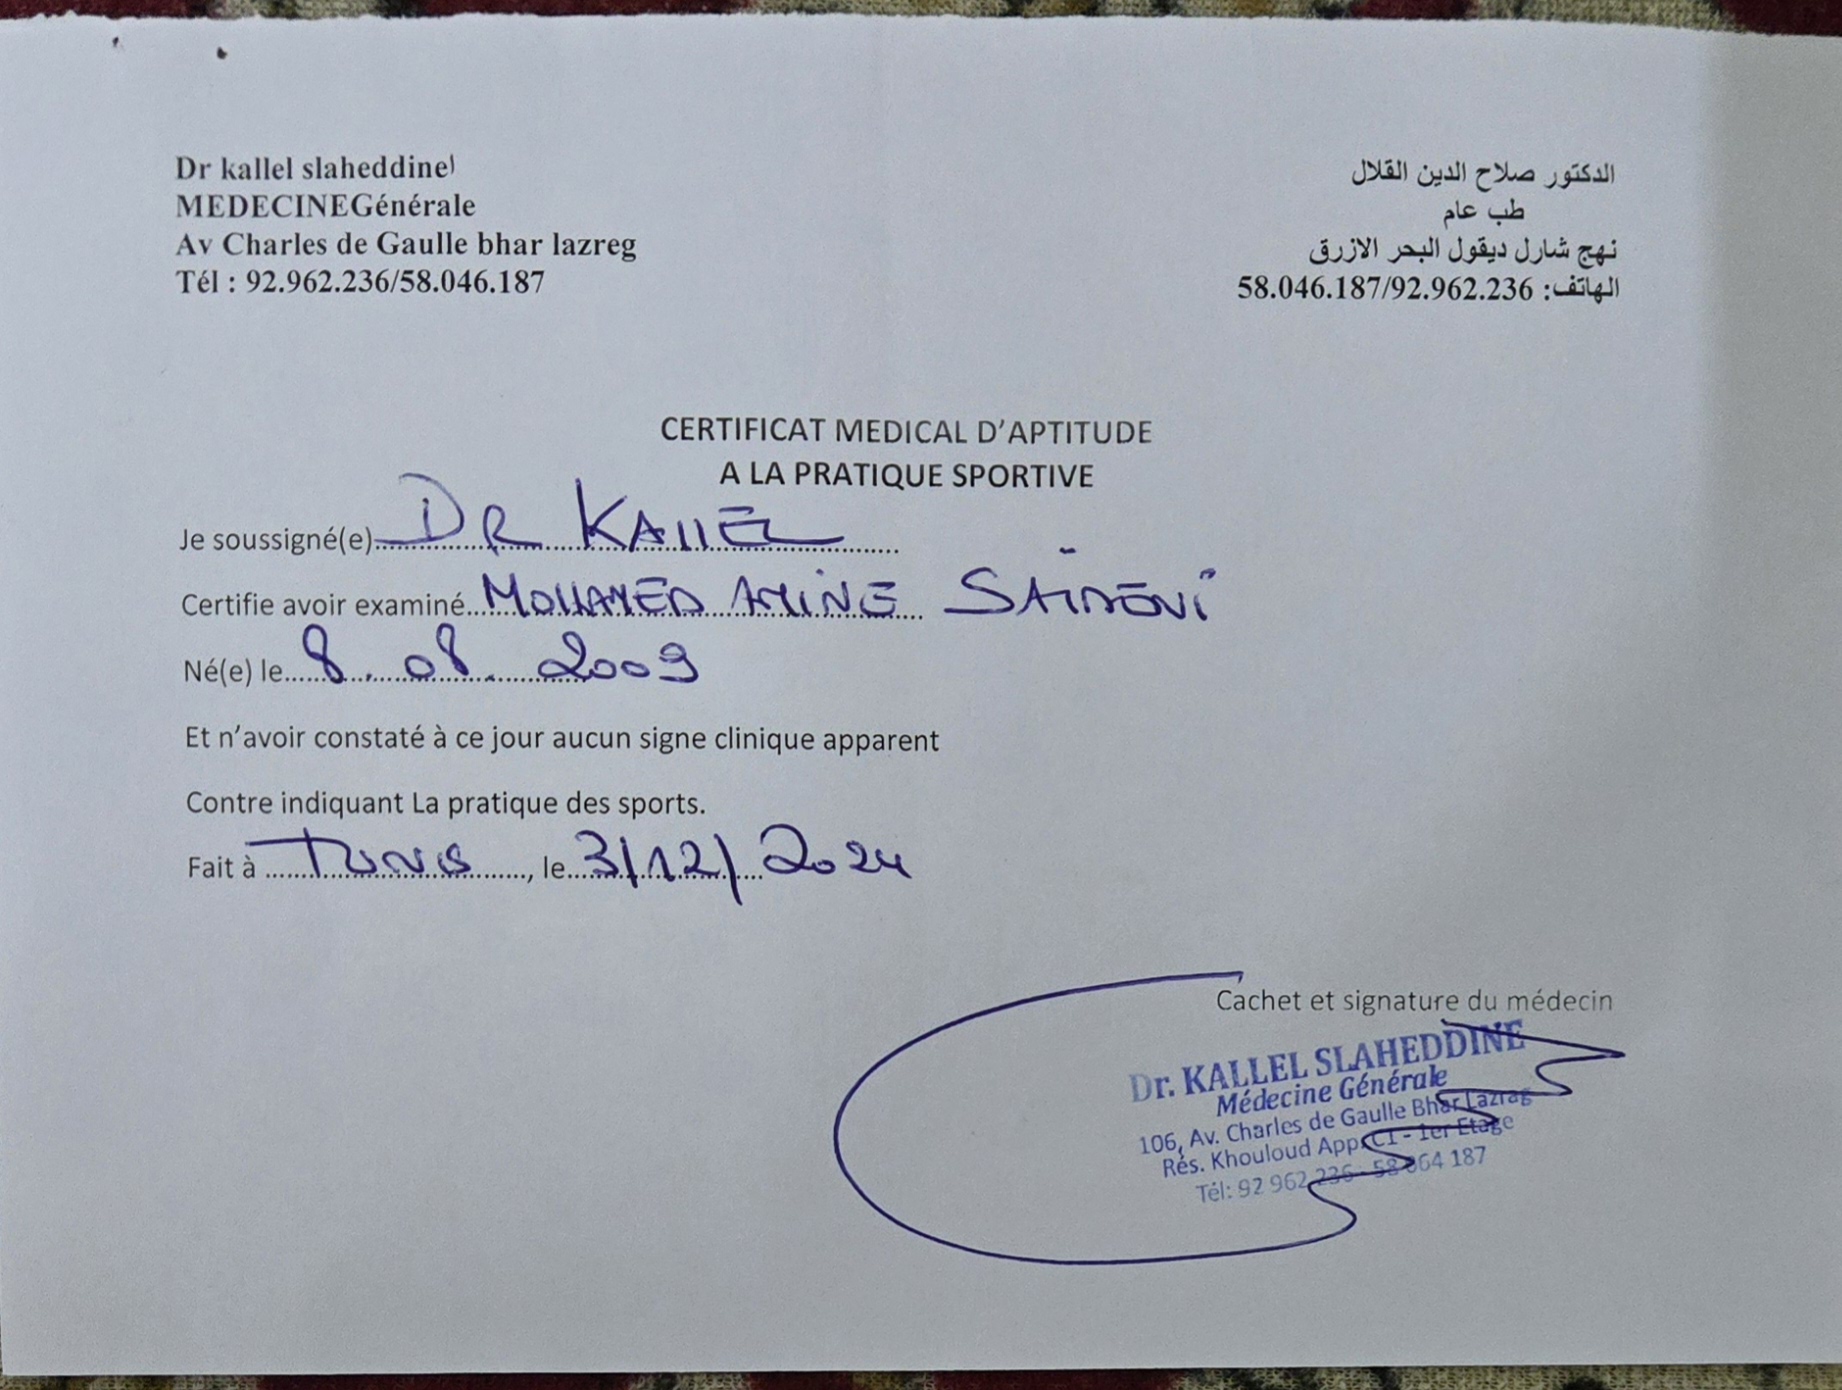 Dr kallel slaheddine
MEDECINEGénérale
Av Charles de Gaulle bhar lazreg
Tél : 92.962.236/58.046.187
الدكتور صلاح الدين القلال
طب عام
نهج شارل ديقول البحر الازرق
الهاتف: 58.046.187/92.962.236
CERTIFICAT MEDICAL D’APTITUDE
A LA PRATIQUE SPORTIVE
Je soussigné(e) DR KALLEL
Certifie avoir examiné MOHAMED AMINE
Né(e) le 8.08.2009
Et n’avoir constaté à ce jour aucun signe clinique apparent
Contre indiquant La pratique des sports.
Fait à TUNIS, le 3/12/2024
Cachet et signature du médecin
Dr. KALLEL SLAHEDDINE
Médecine Générale
106, Av. Charles de Gaulle Bhar Lazrag
Rés. Khouloud App. C1 - 1er Etage
Tél: 92 962 236 - 58 064 187